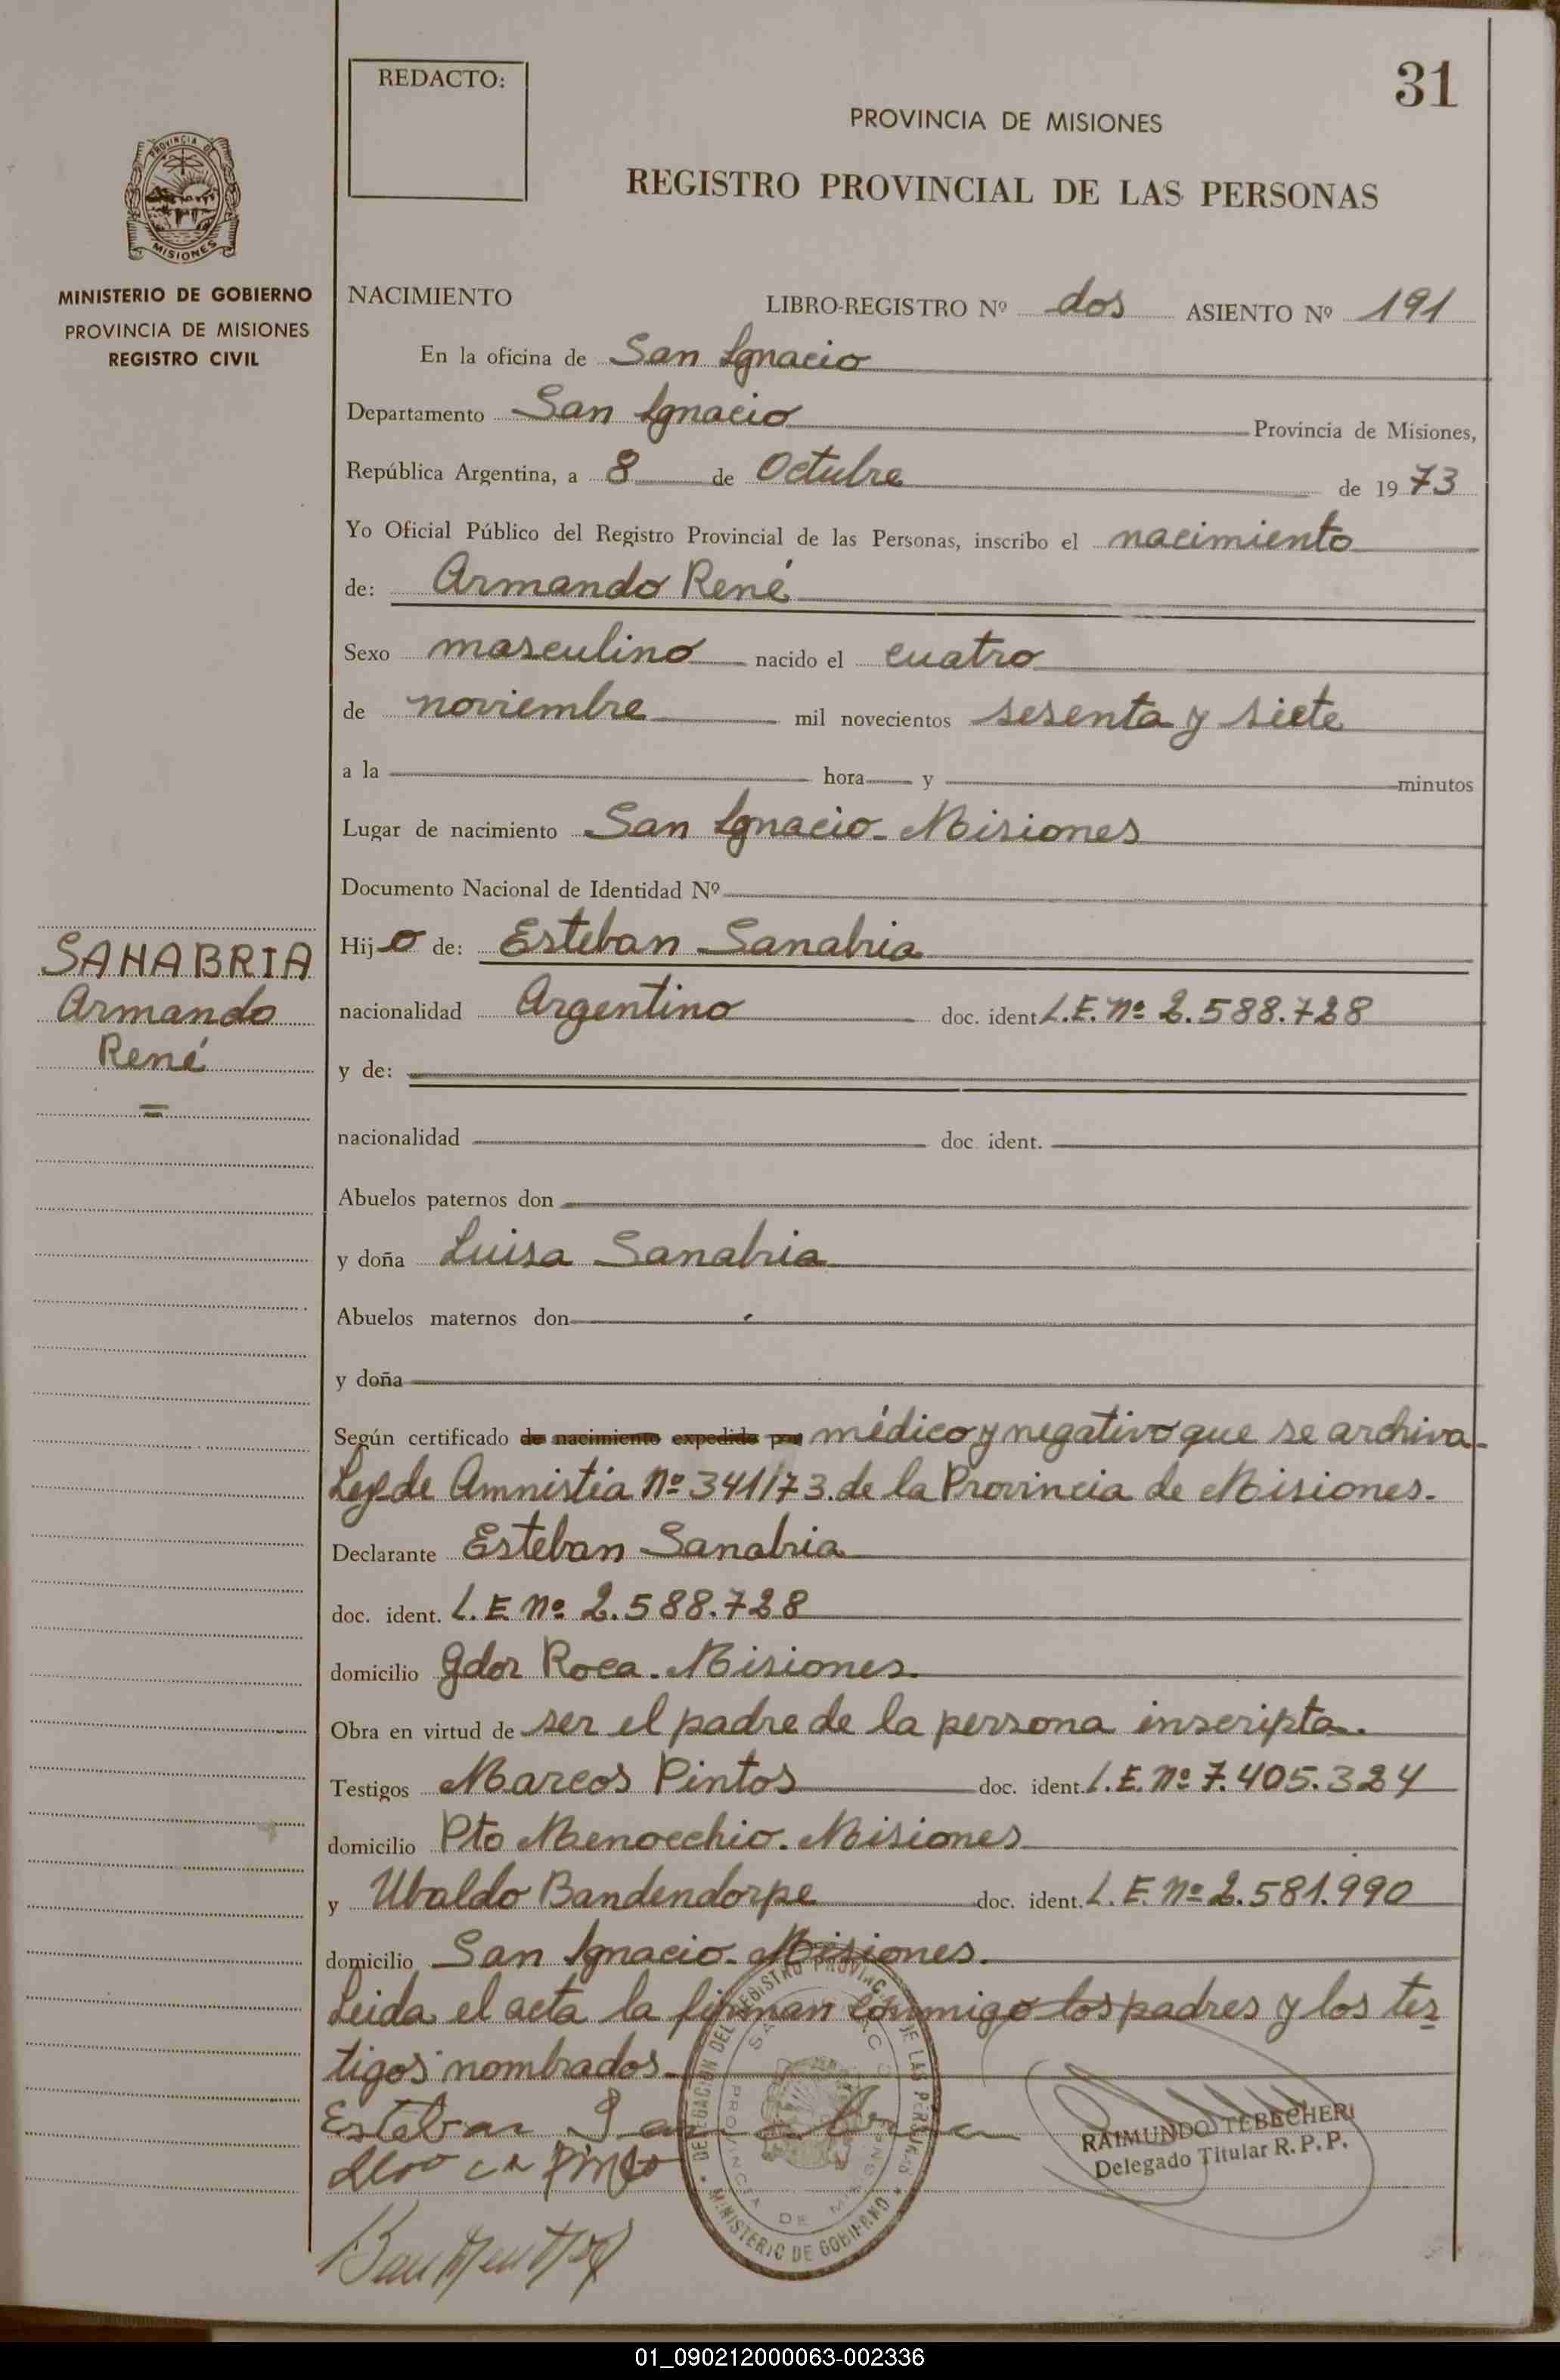 31
REDACTO:
PROVINCIA DE MISIONES
REGISTRO PROVINCIAL DE LAS PERSONAS
PROVINCIA DE
MISIONES
MINISTERIO DE GOBIERNO
PROVINCIA DE MISIONES
REGISTRO CIVIL
NACIMIENTO LIBRO-REGISTRO Nº dos ASIENTO Nº 191
En la oficina de San Ignacio
Departamento San Ignacio Provincia de Misiones,
República Argentina, a 8 de Octubre de 1973
Yo Oficial Público del Registro Provincial de las Personas, inscribo el nacimiento
de: Armando René
Sexo masculino nacido el cuatro
de noviembre mil novecientos sesenta y siete
a la hora y minutos
Lugar de nacimiento San Ignacio - Misiones
Documento Nacional de Identidad Nº
SANABRIA
Armando
René
Hijo de: Esteban Sanabria
nacionalidad Argentino doc. ident. L.E. nº 2.588.728
y de:
nacionalidad doc. ident.
Abuelos paternos don
y doña Luisa Sanabria
Abuelos maternos don
y doña
Según certificado de nacimiento expedido por médico y negativo que se archiva-
Ley de Amnistia nº 341/73. de la Provincia de Misiones.
Declarante Esteban Sanabria
doc. ident. L.E nº 2.588.728
domicilio Gdor Roca. Misiones.
Obra en virtud de ser el padre de la persona inscripta.
Testigos Marcos Pintos doc. ident. L.E. nº 7.405.324
domicilio Pto Menocchio. Misiones
y Ubaldo Bandendorpe doc. ident. L.E. nº 2.581.990
domicilio San Ignacio. Misiones.
Leida el acta la firman conmigo los padres y los tes
tigos nombrados.
Esteban Sanabria
DELEGACION DEL REGISTRO PROVINCIAL DE LAS PERSONAS
PROVINCIA DE MISIONES
MINISTERIO DE GOBIERNO
RAIMUNDO TEBECHERI
Delegado Titular R. P. P.
01_090212000063-002336